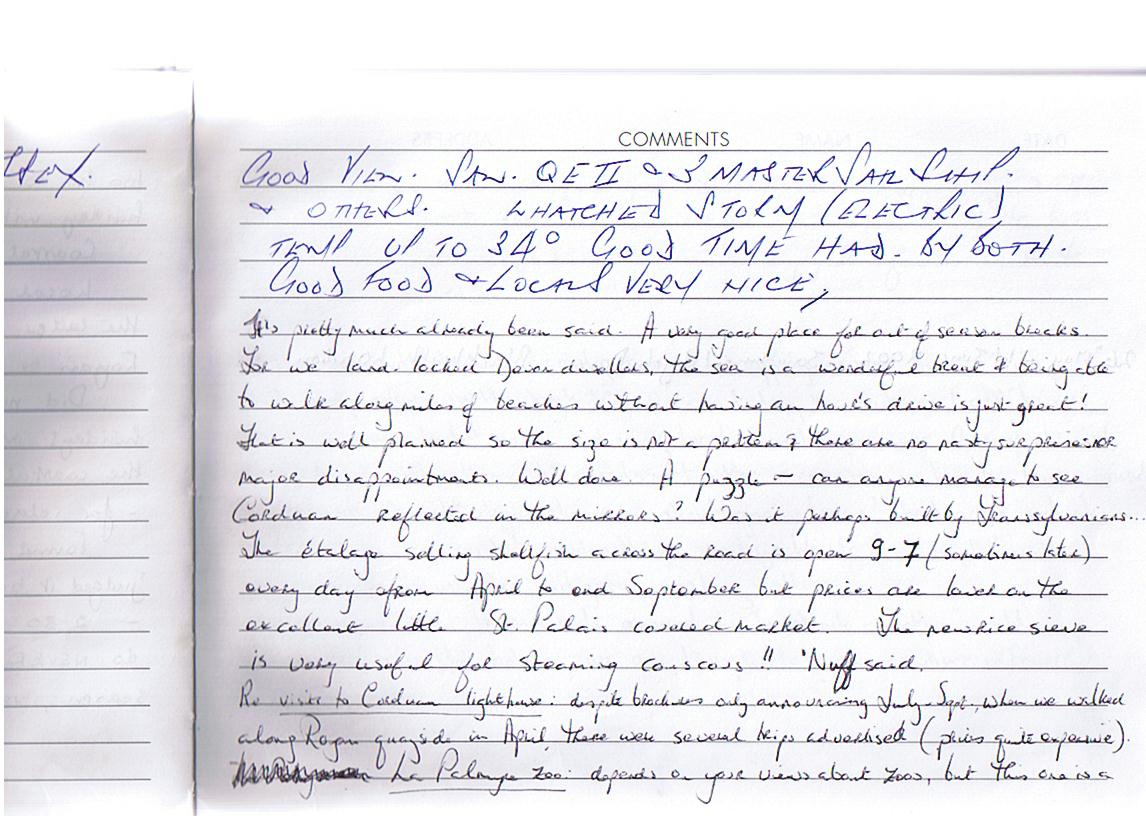 COMMENTS
GOOD VIEW. SAW. QE II & 3 MASTER SAIL SHIP.
& OTHERS. WHATCHED STORM (ELECTRIC)
TEMP UP TO 34° GOOD TIME HAD. BY BOTH.
GOOD FOOD & LOCALS VERY NICE,
It's pretty much already been said. A very good place for out of season breaks.
For we land-locked Devon dwellers, the sea is a wonderful break & being able
to walk along miles of beaches without having an hour's drive is just great!
Flat is well planned so the size is not a problem & there are no nasty surprises NOR
major disappointments. Well done. A puzzle - can anyone manage to see
Corduan reflected in the mirrors? Was it perhaps built by Transsylvanians...
The étalage selling shellfish across the road is open 9-7 (sometimes later)
every day from April to end September but prices are lower on the
excellent little St. Palais covered market. The new rice sieve
is very useful for steaming couscous!! 'Nuff said.
Re visits to Corduan lighthouse: despite brochures only announcing July-Sept., when we walked
along Royan quayside in April, there were several trips advertised (prices quite expensive).
La Palmyre Zoo: depends on your views about zoos, but this one is a